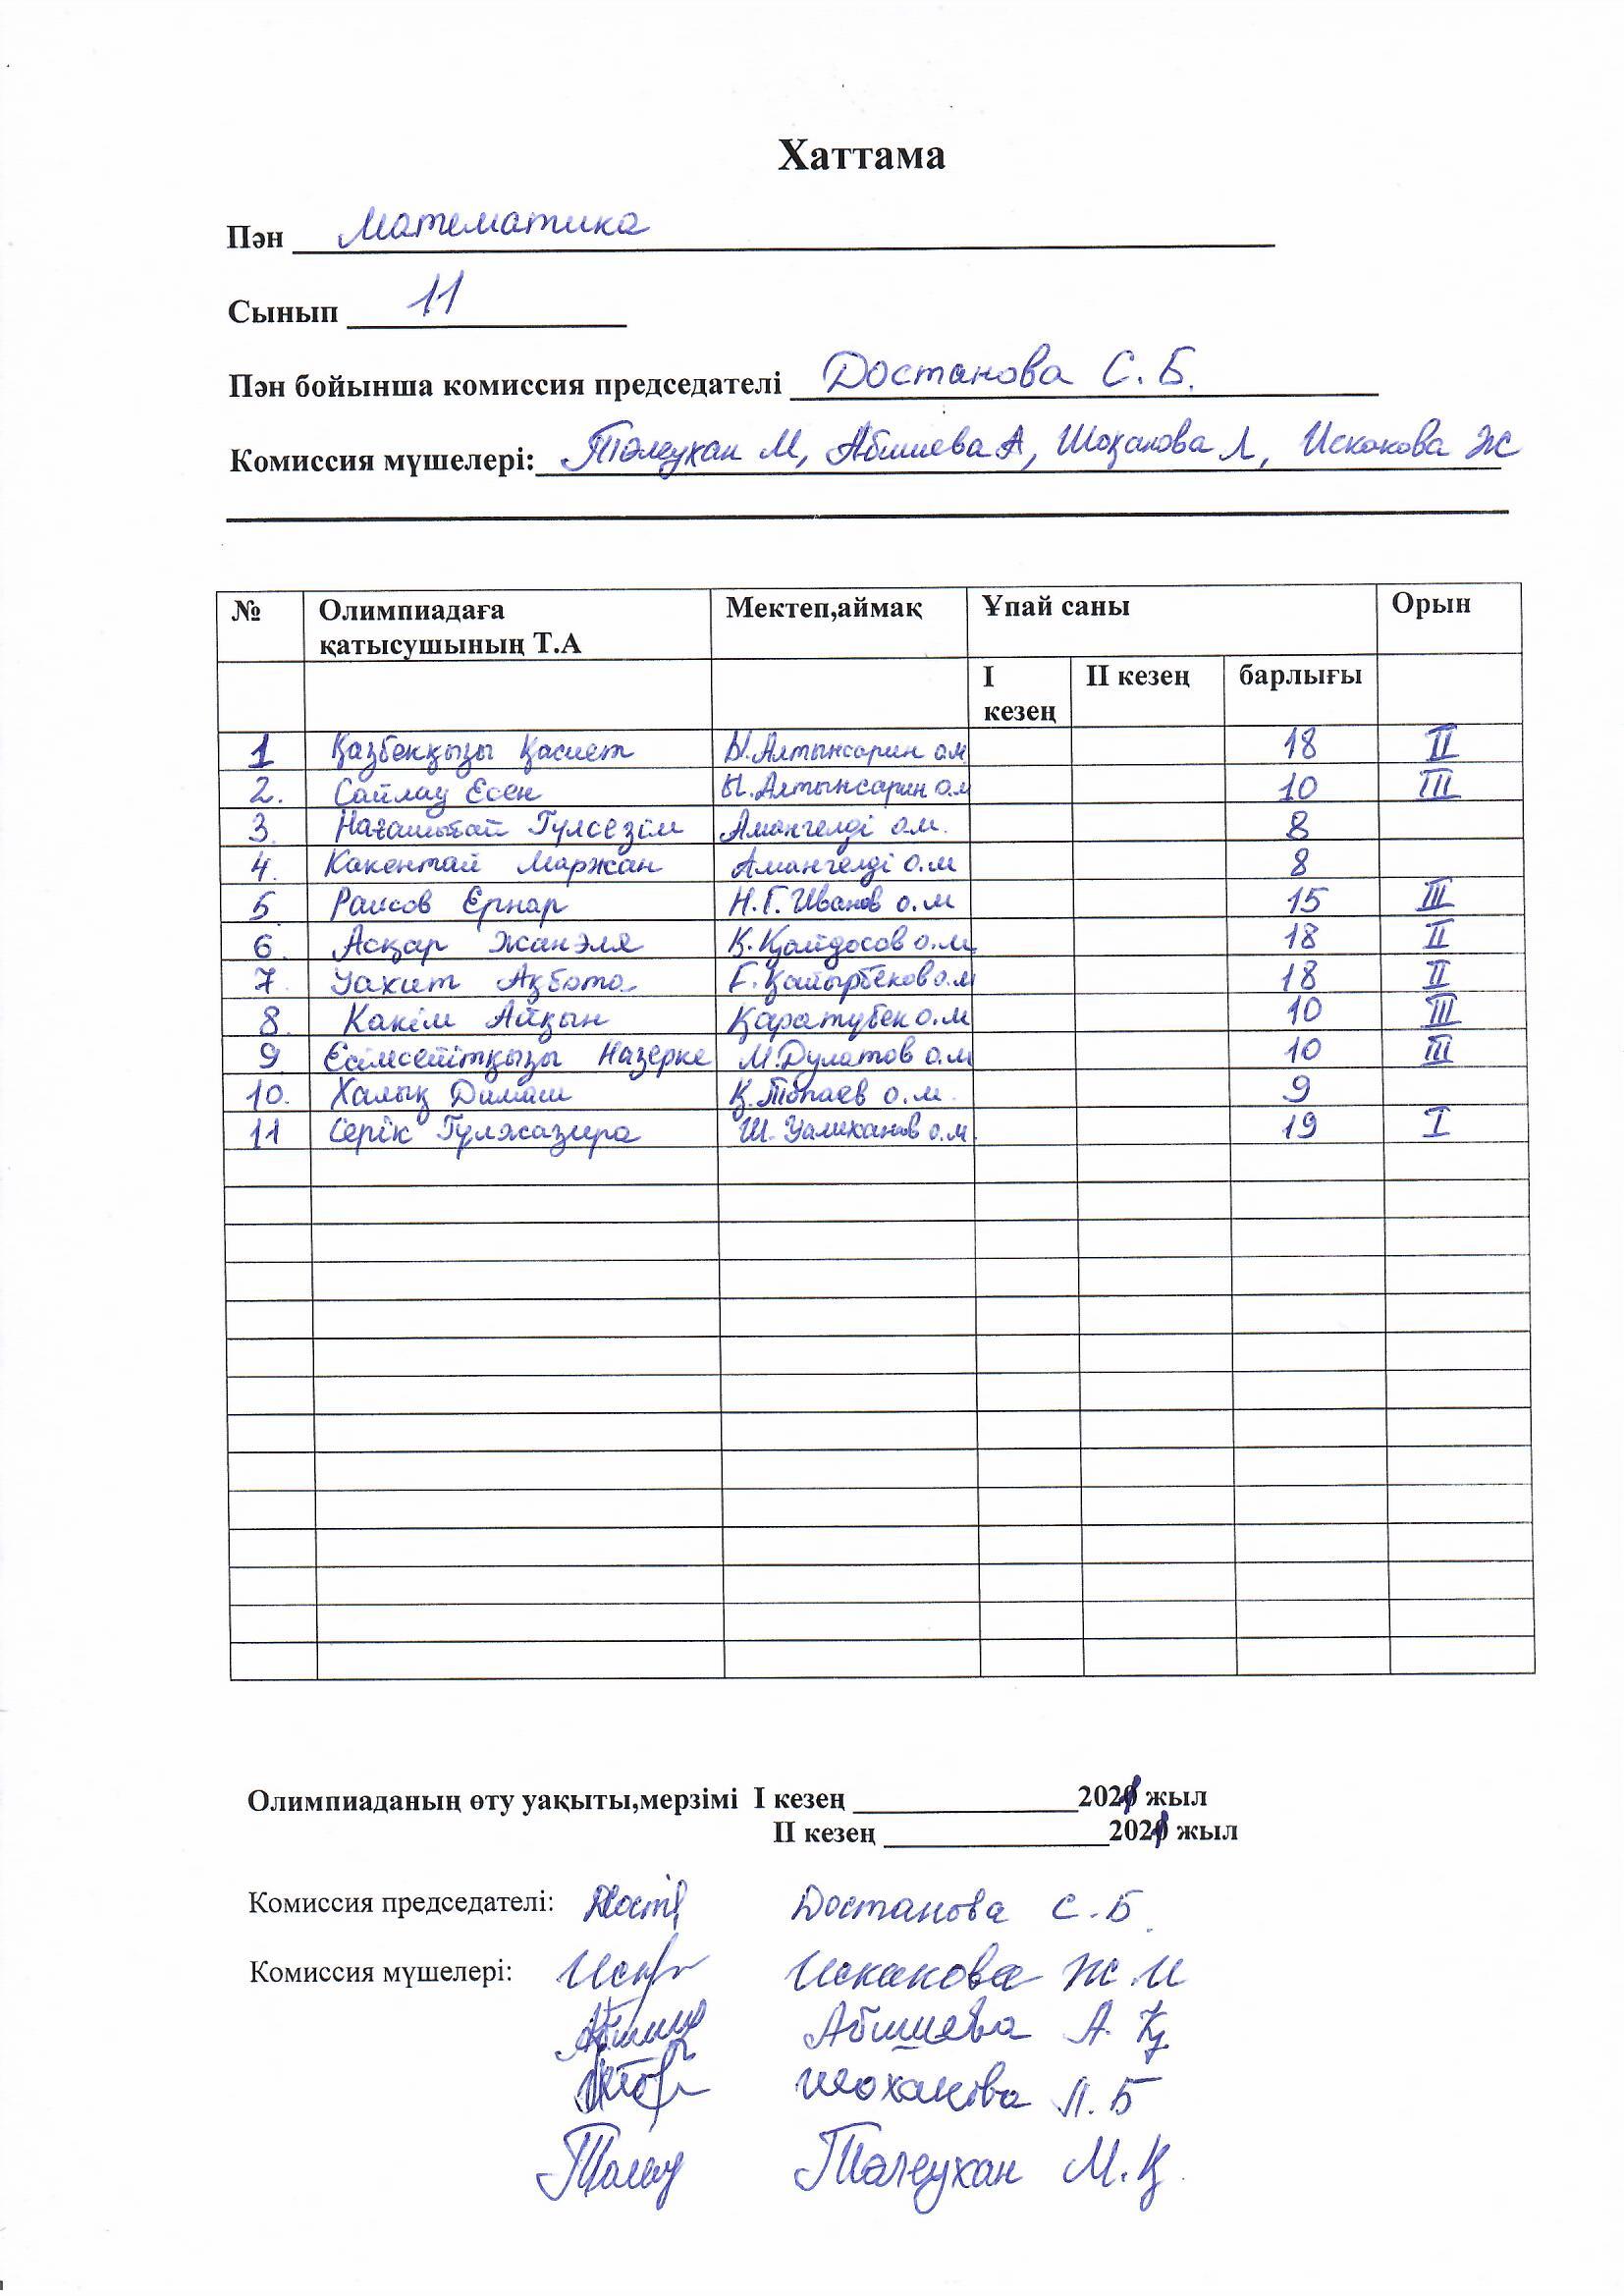 Хаттама
Пән Математика
Сынып 11
Пән бойынша комиссия председателі Достанова С.Б.
Комиссия мүшелері: Төлеухан М, Абишева А, Шоханова Л, Искакова Ж
№ Олимпиадаға қатысушының Т.А Мектеп,аймақ Ұпай саны Орын
I кезең II кезең барлығы
1 Қазбекқызы Қасиет Ы.Алтынсарин о.м 18 II
2. Сайлау Есен Ы.Алтынсарин о.м 10 III
3. Нағашыбай Гүлсезім Амангелді о.м. 8
4. Какентай Маржан Амангелді о.м 8
5 Раисов Ернар Н.Г.Иванов о.м 15 III
6. Асқар Жанэля Қ.Қайдосов о.м. 18 II
7. Уахит Ақбота Ғ.Қайырбеков о.м 18 II
8. Какім Айқын Қаратубек о.м 10 III
9 Есімсейітқызы Назерке М.Дулатов о.м 10 III
10. Халық Димаш Қ.Топаев о.м. 9
11 Серік Гүлжазира Ш.Уалиханов о.м. 19 I
Олимпиаданың өту уақыты,мерзімі I кезең 2021 жыл
II кезең 2021 жыл
Комиссия председателі: Достанова С.Б.
Комиссия мүшелері: Искакова Ж.И
Абишева А.Қ
Шоханова Л.Б
Төлеухан М.Қ.